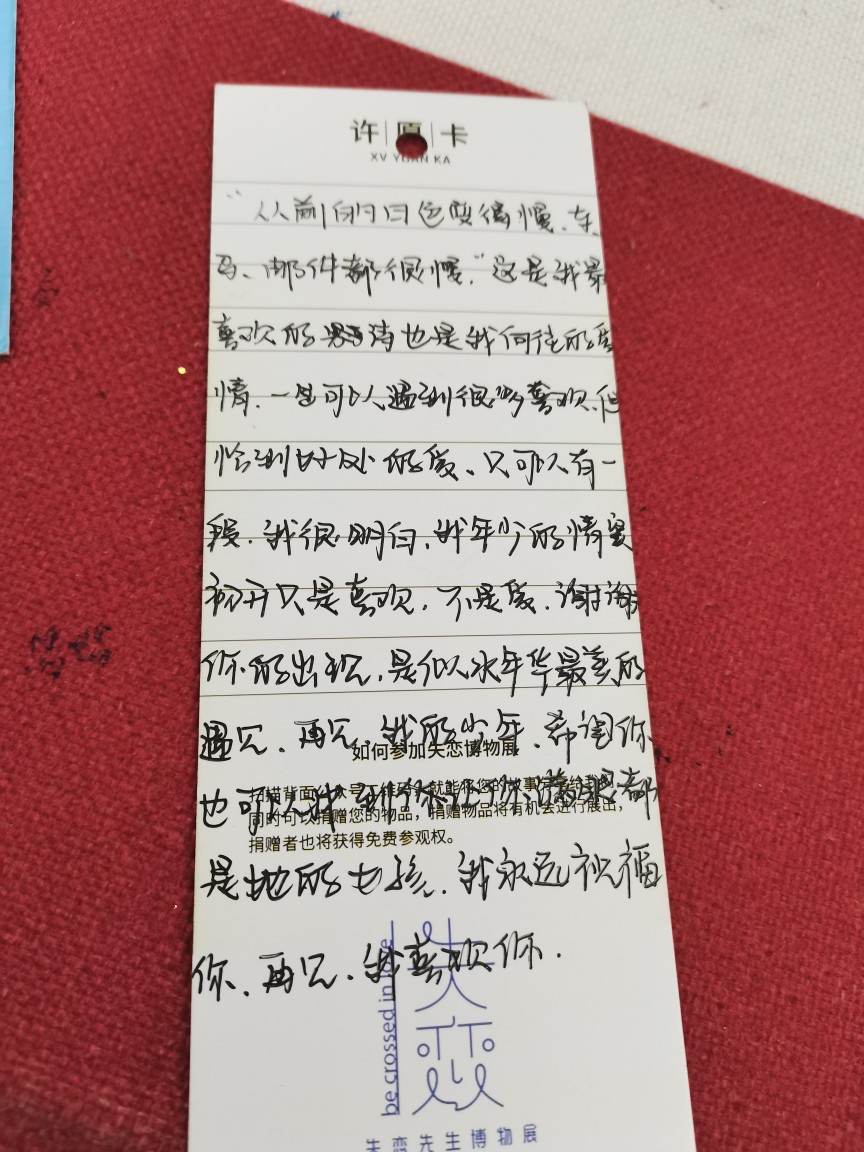 许愿卡
XV YUAN KA
“从前的日色变得慢、车、
马、邮件都很慢,”这是我最
喜欢的诗也是我向往的爱
情.一生可以遇到很多喜欢.但
恰到好处的爱、只可以有一
段.我很明白,我年少的情窦
初开只是喜欢,不是爱.谢谢
你的出现,是似水年华最美的
遇见、再见,我的少年、希望你
如何参加失恋博物展
也可以找到你让你满眼都
扫描背面公众号二维码,就能将您的故事
同时可以捐赠您的物品,捐赠物品将有机会进行展出,
捐赠者也将获得免费参观权。
是她的女孩.我永远祝福
你、再见.我喜欢你.
be crossed in love
失恋
失恋先生博物展